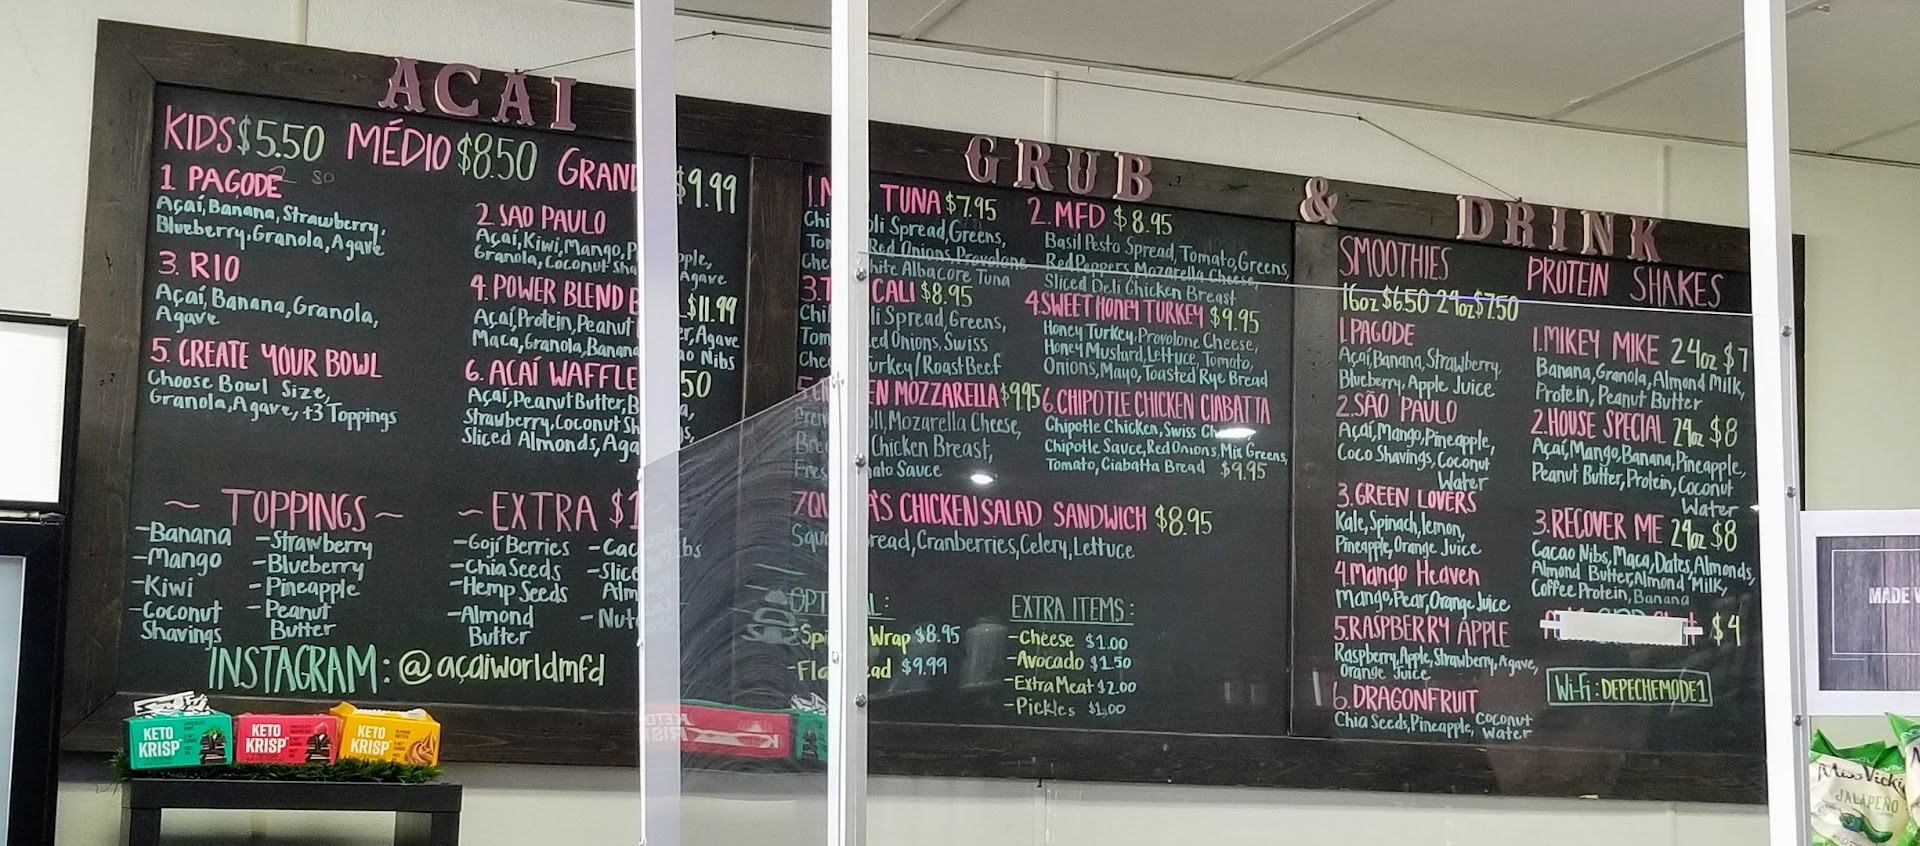 ACAI
KIDS $5.50 MÉDIO $8.50 GRAND $9.99
1. PAGODE
Açaí, Banana, Strawberry,
Blueberry, Granola, Agave
2. SAO PAULO
Açaí, Kiwi, Mango, P ple,
Granola, Coconut Sha Agave
3. RIO
Açaí, Banana, Granola,
Agave
4. POWER BLEND B $11.99
Açaí, Protein, Peanut er, Agave
Maca, Granola, Banana ao Nibs
5. CREATE YOUR BOWL
Choose Bowl Size,
Granola, Agave, +3 Toppings
6. AÇAÍ WAFFLE 50
Açaí, Peanut Butter, B a,
Strawberry, Coconut Sh s,
Sliced Almonds, Aga
~ TOPPINGS ~
-Banana
-Mango
-Kiwi
-Coconut
Shavings
-Strawberry
-Blueberry
-Pineapple
-Peanut
Butter
~ EXTRA $1
-Gojí Berries
-Chia Seeds
-Hemp Seeds
-Almond
Butter
-Cac ibs
-Slice
Alm
-Nut
INSTAGRAM: @açaiworldmfd
GRUB & DRINK
1. TUNA $7.95
Chi li Spread, Greens,
Tom Red Onions, Provolone
Che hite Albacore Tuna
2. MFD $8.95
Basil Pesto Spread, Tomato, Greens,
Red Peppers, Mozarella Cheese,
Sliced Deli Chicken Breast
3. T CALI $8.95
Chi li Spread, Greens,
Tom ed Onions, Swiss
Che urkey/Roast Beef
4. SWEET HONEY TURKEY $9.95
Honey Turkey, Provolone Cheese,
Honey Mustard, Lettuce, Tomato,
Onions, Mayo, Toasted Rye Bread
5. EN MOZZARELLA $9.95
Fren ll, Mozarella Cheese,
Bre Chicken Breast,
Fres ato Sauce
6. CHIPOTLE CHICKEN CIABATTA
Chipotle Chicken, Swiss Ch
Chipotle Sauce, Red Onions, Mix Greens,
Tomato, Ciabatta Bread $9.95
7. QU A'S CHICKEN SALAD SANDWICH $8.95
Squ read, Cranberries, Celery, Lettuce
OPT L:
-Spi Wrap $8.95
-Fla ead $9.99
EXTRA ITEMS:
-Cheese $1.00
-Avocado $1.50
-Extra Meat $2.00
-Pickles $1.00
SMOOTHIES
16oz $6.50 24oz $7.50
1. PAGODE
Açaí, Banana, Strawberry,
Blueberry, Apple Juice
2. SÃO PAULO
Açaí, Mango, Pineapple,
Coco Shavings, Coconut
Water
3. GREEN LOVERS
Kale, Spinach, lemon,
Pineapple, Orange Juice
4. Mango Heaven
Mango, Pear, Orange Juice
5. RASPBERRY APPLE
Raspberry, Apple, Strawberry, Agave,
Orange Juice
6. DRAGONFRUIT
Chia Seeds, Pineapple, Coconut
Water
PROTEIN SHAKES
1. MIKEY MIKE 24oz $7
Banana, Granola, Almond Milk,
Protein, Peanut Butter
2. HOUSE SPECIAL 24oz $8
Açaí, Mango, Banana, Pineapple,
Peanut Butter, Protein, Coconut
Water
3. RECOVER ME 24oz $8
Cacao Nibs, Maca, Dates, Almonds,
Almond Butter, Almond Milk,
Coffee Protein, Banana
$4
Wi-Fi: DEPECHEMODE1
KETO
KRISP
KETO
KRISP
KETO
KRISP
MADE
Miss Vicki
JALAPEÑO